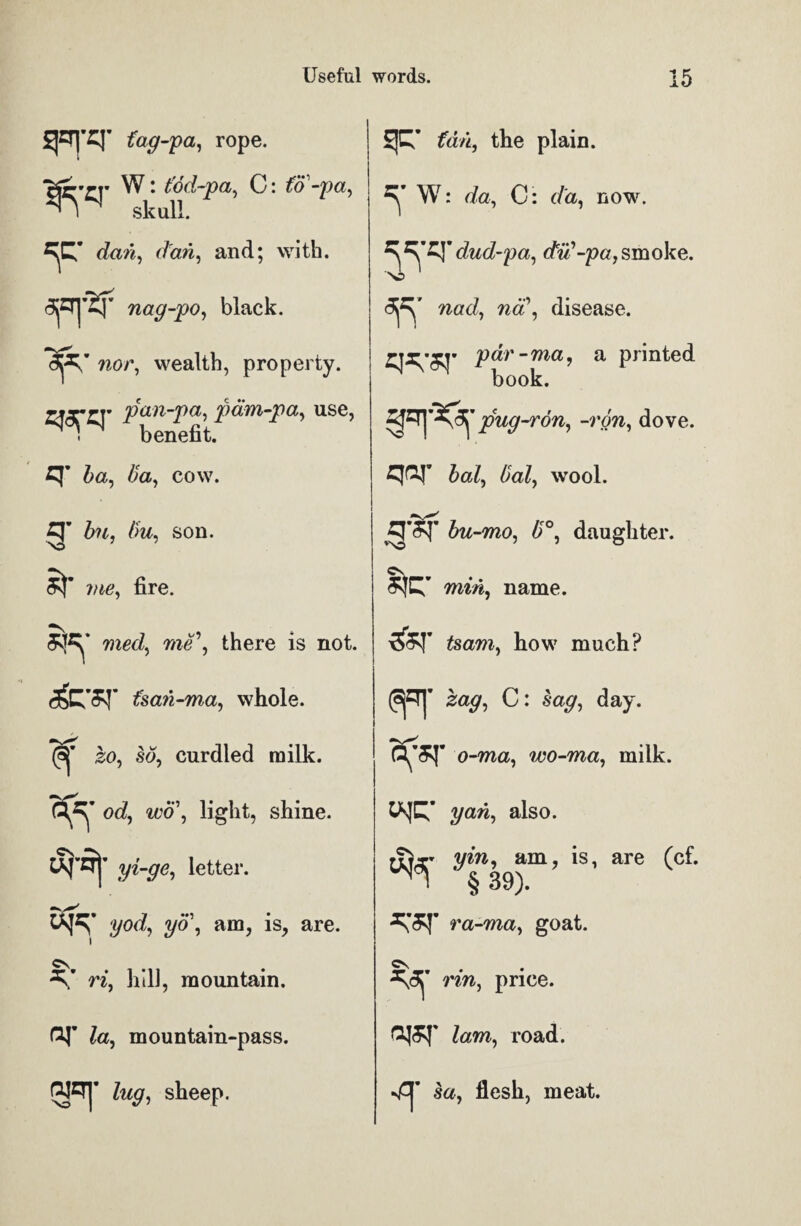 Useful words. 15
ཐག་པ་ t́ag-pa, rope.
ཐོད་པ་ W: t́ód-pa, C: t́ō̈'-pa,
skull.
དང་ dań, d́ań, and; with.
ནག་པོ་ nag-po, black.
ནོར་ nor, wealth, property.
ཕན་པ་ ṕan-pa, ṕäm-pa, use,
benefit.
བ་ ba, b́a, cow.
བུ་ bu, b́u, son.
མེ་ me, fire.
མེད་ med, mē', there is not.
ཚང་མ་ t́sań-ma, whole.
ཞོ་ żo, śo, curdled milk.
འོད་ od, wō̈', light, shine.
ཡི་གེ་ yi-ge, letter.
ཡོད་ yod, yō̈', am, is, are.
རི་ ri, hill, mountain.
ལ་ la, mountain-pass.
ལུག་ lug, sheep.
ཐང་ t́ań, the plain.
ད་ W: da, C: d́a, now.
དུད་པ་ dud-pa, d́ṻ'-pa, smoke.
ནད་ nad, nā̈', disease.
པར་མ་ pár-ma, a printed
book.
ཕུག་རོན་ ṕug-rón, -rǫn, dove.
བལ་ bal, b́al, wool.
བུ་མོ་ bu-mo, b́°, daughter.
མིང་ miń, name.
ཙམ་ tsam, how much?
ཞག་ żag, C: śag, day.
འོ་མ་ o-ma, wo-ma, milk.
ཡང་ yań, also.
ཡིན་ yin, am, is, are (cf.
§ 39).
ར་མ་ ra-ma, goat.
རིན་ rin, price.
ལམ་ lam, road.
ཤ་ śa, flesh, meat.